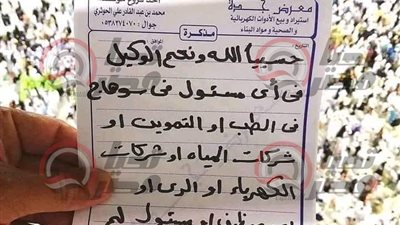 معرض حمزة
استيراد وبيع الأدوات الكهربائية
والصحية ومواد البناء
محمد بن عبد القادر علي الحوثري
جوال : ٠٥٣٨٢٧٤٠٧٠
مذكرة
حسبيا الله ونعم الوكيل
فى أى مسئول فى سوهاج
فى الطب او التموين او
شركات المياه او شركات
الكهرباء او الرى او